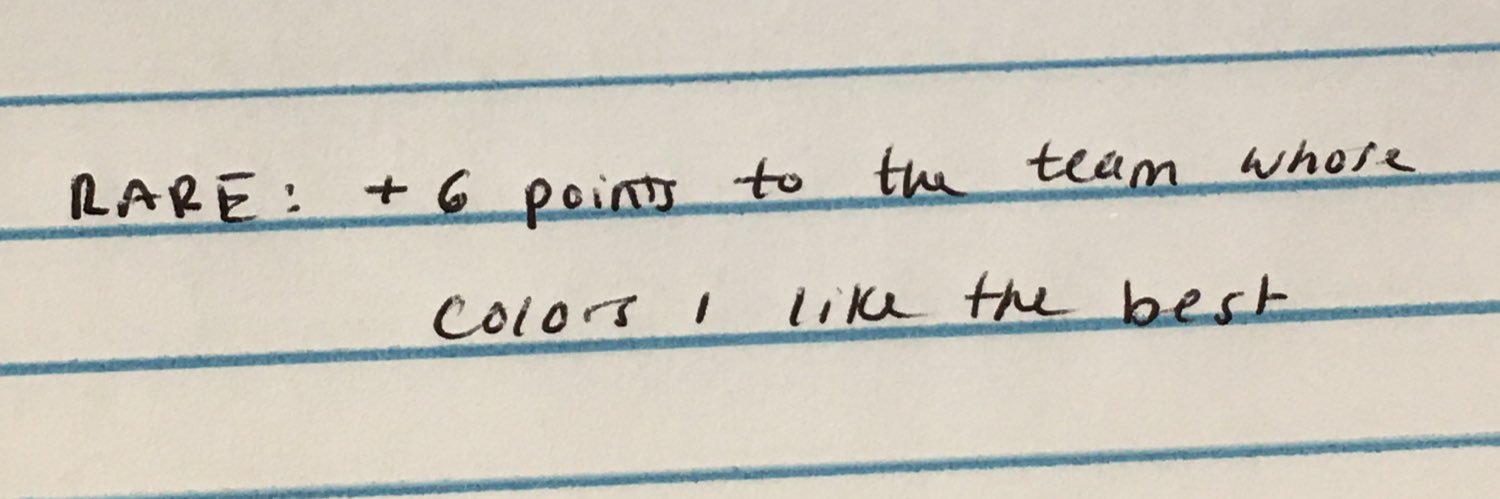 RARE: + 6 points to the team whose
colors I like the best